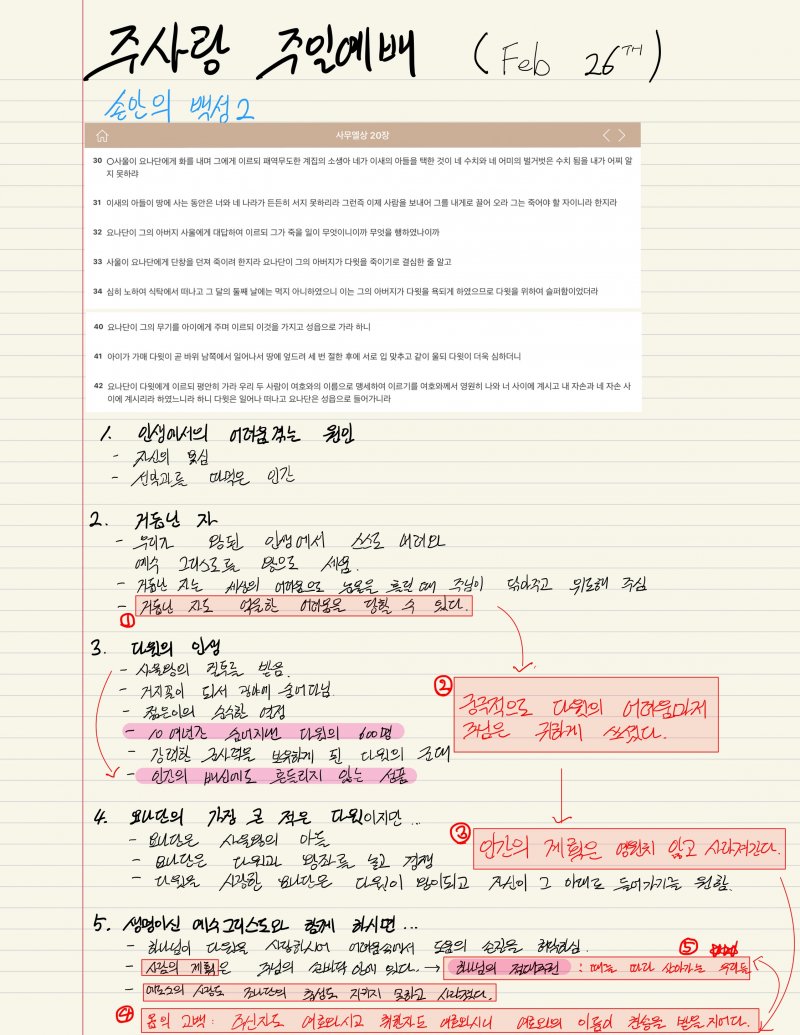 주사랑 주일예배 (Feb 26TH)
손안의 백성 2
사무엘상 20장
30 ○사울이 요나단에게 화를 내며 그에게 이르되 패역무도한 계집의 소생아 네가 이새의 아들을 택한 것이 네 수치와 네 어미의 벌거벗은 수치 됨을 내가 어찌 알
지 못하랴
31 이새의 아들이 땅에 사는 동안은 너와 네 나라가 든든히 서지 못하리라 그런즉 이제 사람을 보내어 그를 내게로 끌어 오라 그는 죽어야 할 자이니라 한지라
32 요나단이 그의 아버지 사울에게 대답하여 이르되 그가 죽을 일이 무엇이니이까 무엇을 행하였나이까
33 사울이 요나단에게 단창을 던져 죽이려 한지라 요나단이 그의 아버지가 다윗을 죽이기로 결심한 줄 알고
34 심히 노하여 식탁에서 떠나고 그 달의 둘째 날에는 먹지 아니하였으니 이는 그의 아버지가 다윗을 욕되게 하였으므로 다윗을 위하여 슬퍼함이었더라
40 요나단이 그의 무기를 아이에게 주며 이르되 이것을 가지고 성읍으로 가라 하니
41 아이가 가매 다윗이 곧 바위 남쪽에서 일어나서 땅에 엎드려 세 번 절한 후에 서로 입 맞추고 같이 울되 다윗이 더욱 심하더니
42 요나단이 다윗에게 이르되 평안히 가라 우리 두 사람이 여호와의 이름으로 맹세하여 이르기를 여호와께서 영원히 나와 너 사이에 계시고 내 자손과 네 자손 사
이에 계시리라 하였느니라 하니 다윗은 일어나 떠나고 요나단은 성읍으로 들어가니라
1. 인생에서의 어려움 겪는 원인
- 자신의 욕심
- 선악과를 따먹은 인간
2. 거듭난 자
- 우리가 왕된 인생에서 스스로 내려와
예수 그리스도를 왕으로 세움.
- 거듭난 자는 세상의 어려움으로 눈물을 흘릴 때 주님이 닦아주고 위로해 주심
- 거듭난 자도 억울한 어려움을 당할 수 있다.
①
3. 다윗의 인생
- 사울왕의 질투를 받음.
- 거지꼴이 되서 광야에 숨어다님
- 젊은이의 순수한 열정
- 10여년간 숨어지낸 다윗의 600명
- 강력한 군사력을 보유하게 된 다윗의 군대
- 인간의 배신에도 흔들리지 않는 성품
② 궁극적으로 다윗의 어려움마저
주님은 귀하게 쓰셨다.
4. 요나단의 가장 큰 적은 다윗이지만...
- 요나단은 사울왕의 아들
- 요나단은 다윗과 왕좌를 놓고 경쟁
- 다윗을 사랑한 요나단은 다윗이 왕이되고 자신이 그 아래로 들어가기를 원함.
③ 인간의 계획은 영원치 않고 사라져간다.
5. 생명이신 예수그리스도와 함께 하시면...
- 하나님이 다윗을 사랑하시어 어려움속에서 도움의 손길을 허락하심.
- 사람의 계획은 주님의 손바닥 안에 있다. → 하나님의 절대주권 : 때를 따라 살아가는 우리들
⑤
- 에서의 사랑도 요나단의 충성도 지키지 못하고 사라졌다.
④ 욥의 고백 : 주신자도 여호와시고 취한자도 여호와시니 여호와의 이름이 찬송을 받을지어다.